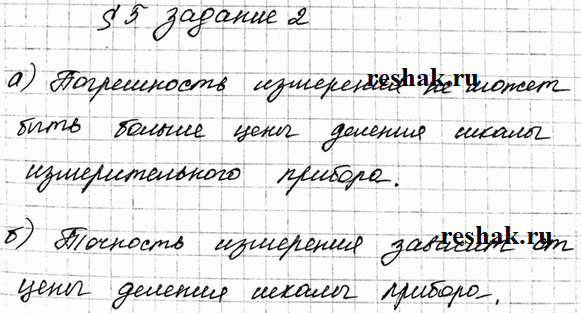 § 5 задание 2
а) Погрешность измерения не может
быть больше цены деления шкалы
измерительного прибора.
б) Точность измерения зависит от
цены деления шкалы прибора.
reshak.ru
reshak.ru